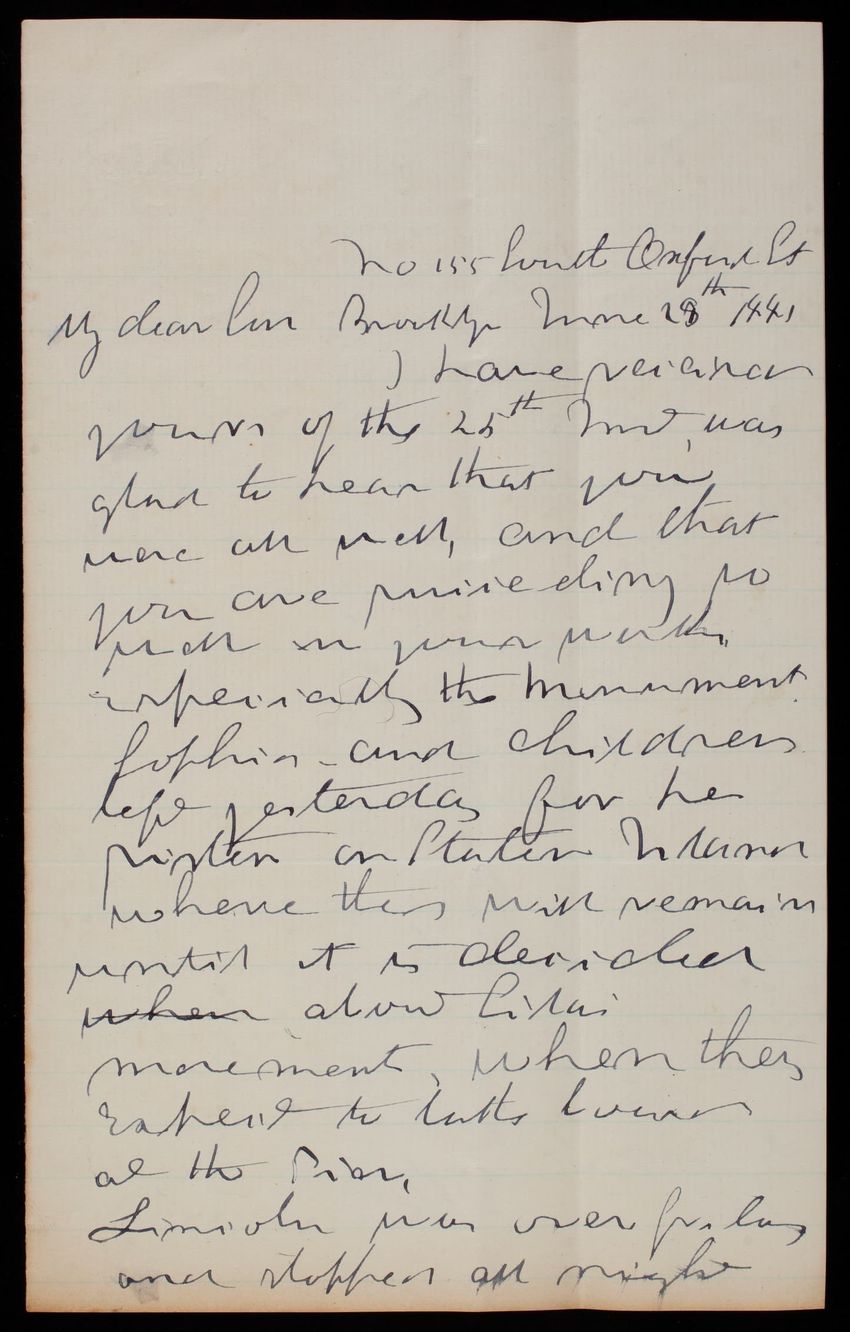 No 155 South Oxford St
My dear Son Brooklyn June 28th 1881
I have received
yours of the 25th Inst, was
glad to hear that you
were all well, and that
you are proceeding so
well in your works,
especially the Monument.
Sophia and children
left yesterday for her
sister on Staten Island
where they will remain
until it is decided
when about
movement, when they
expect to take board
at the Pier,
Lincoln was over friday
and stopped all night